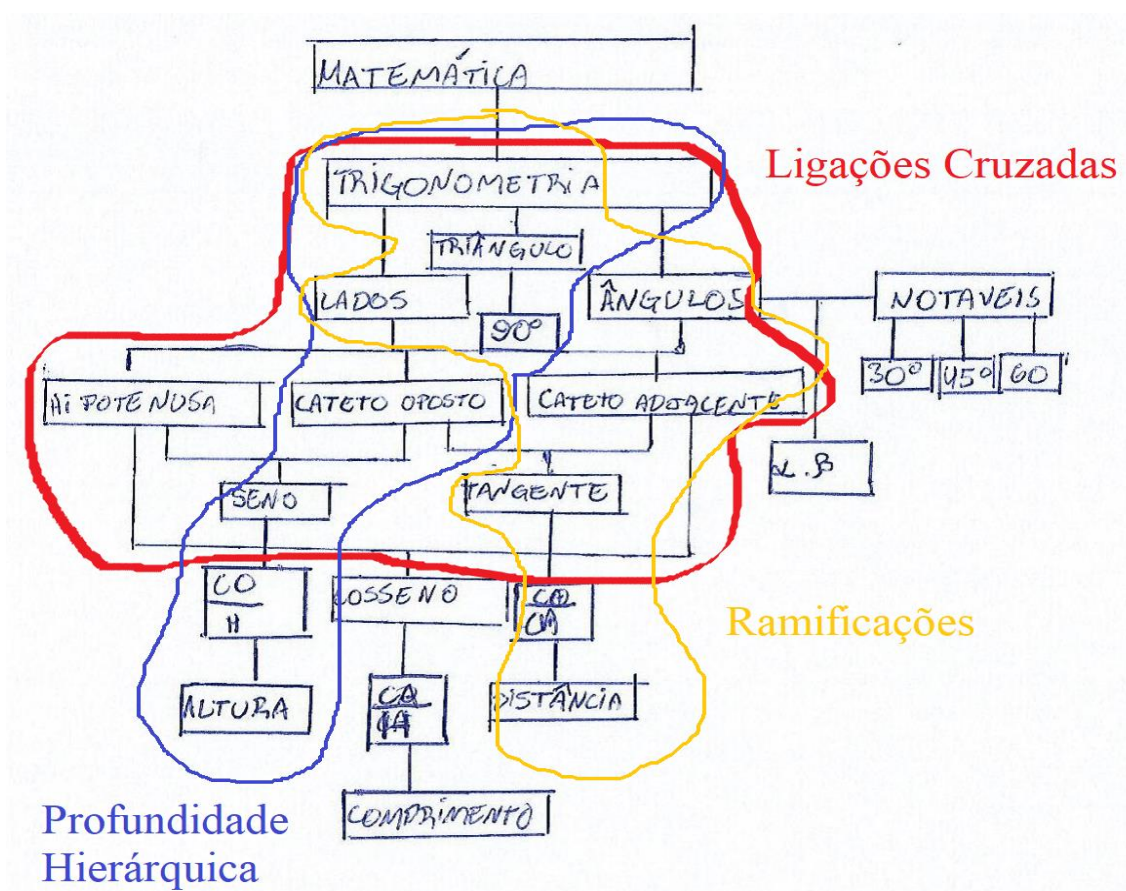 MATEMÁTICA
Ligações Cruzadas
TRIGONOMETRIA
TRIÂNGULO
LADOS
ÂNGULOS
NOTAVEIS
90º
30º
45º
60
HIPOTENUSA
CATETO OPOSTO
CATETO ADJACENTE
α.β
SENO
TANGENTE
CO
H
COSSENO
CO
CA
Ramificações
ALTURA
CA
H
DISTÂNCIA
COMPRIMENTO
Profundidade
Hierárquica